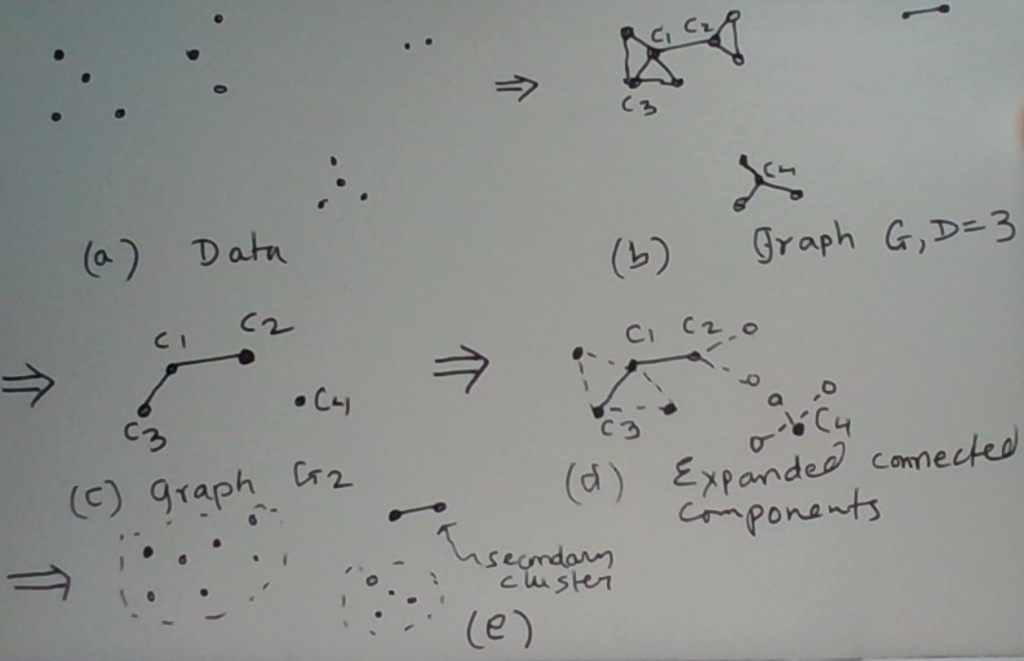 C1 C2
C3
C4
(a) Data
(b) Graph G, D=3
C1 C2
C3
C4
(c) Graph G2
C1 C2
C3
C4
(d) Expanded connected
components
secondary
cluster
(e)